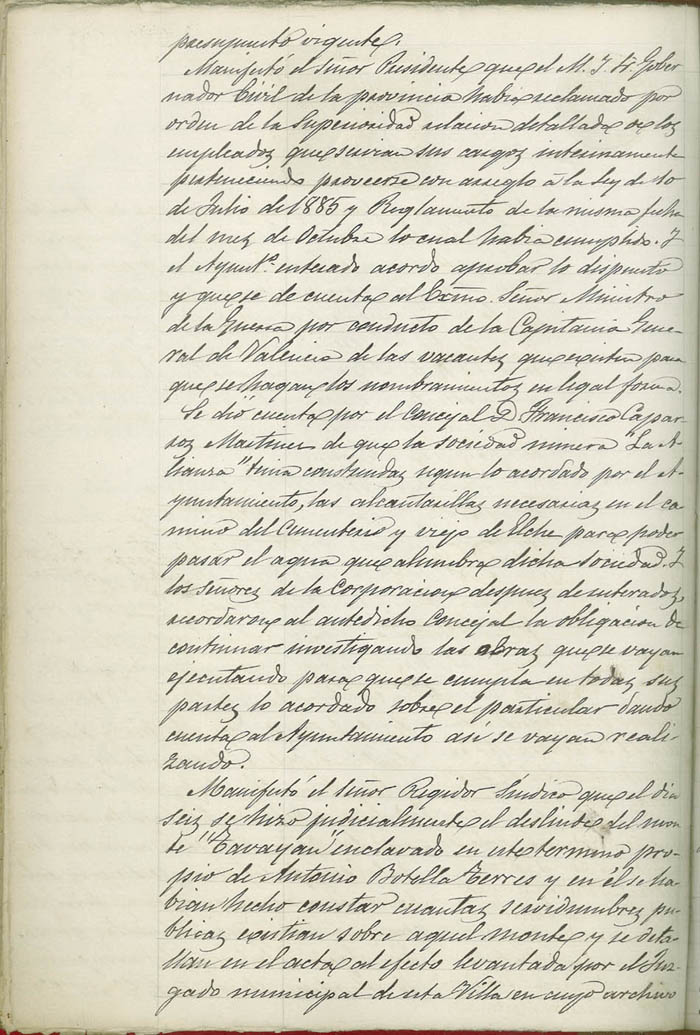 presupuesto vigente.
Manifestó el señor Presidente que el M. I. Sr. Gober
nador Civil de la provincia habia reclamado por
orden de la Superioridad relacion detallada de los
empleados que servian sus cargos interinamente
perteneciendo proveerse con arreglo á la Ley de 10
de Julio de 1885 y Reglamento de la misma fecha
del mes de Octubre lo cual habia cumplido. Y
el Ayuntº. enterado acordó aprobar lo dispuesto
y que se de cuenta al Exmo. Señor Ministro
de la Guerra por conducto de la Capitania Gene
ral de Valencia de las vacantes que existen para
que se hagan los nombramientos en legal forma.
Se dió cuenta por el Concejal D Francisco Capar
ros Martinez de que la sociedad minera "La A
lianza" tenia construidas segun lo acordado por el A
yuntamiento, las alcantarillas necesarias en el ca
mino del Cementerio y viejo de Elche para poder
pasar el agua que alumbra dicha Sociedad. Y
los señores de la Corporacion despues de enterados,
recordaron al antedicho Concejal la obligacion de
continuar investigando las obras que se vayan
ejecutando para que se cumpla en todas sus
partes lo acordado sobre el particular dando
cuenta al Ayuntamiento así se vayan reali
zando.
Manifestó el señor Regidor Síndico que el dia
seis se hizo judicialmente el deslinde del mon
te "Tavayan" enclavado en este termino pro
pio de Antonio Botella Terres y en él se ha
bian hecho constar cuantas servidumbres pu
blicas existian sobre aquel monte y se deta
llan en el acta al efecto levantada por el Juz
gado municipal de esta Villa en cuyo archivo